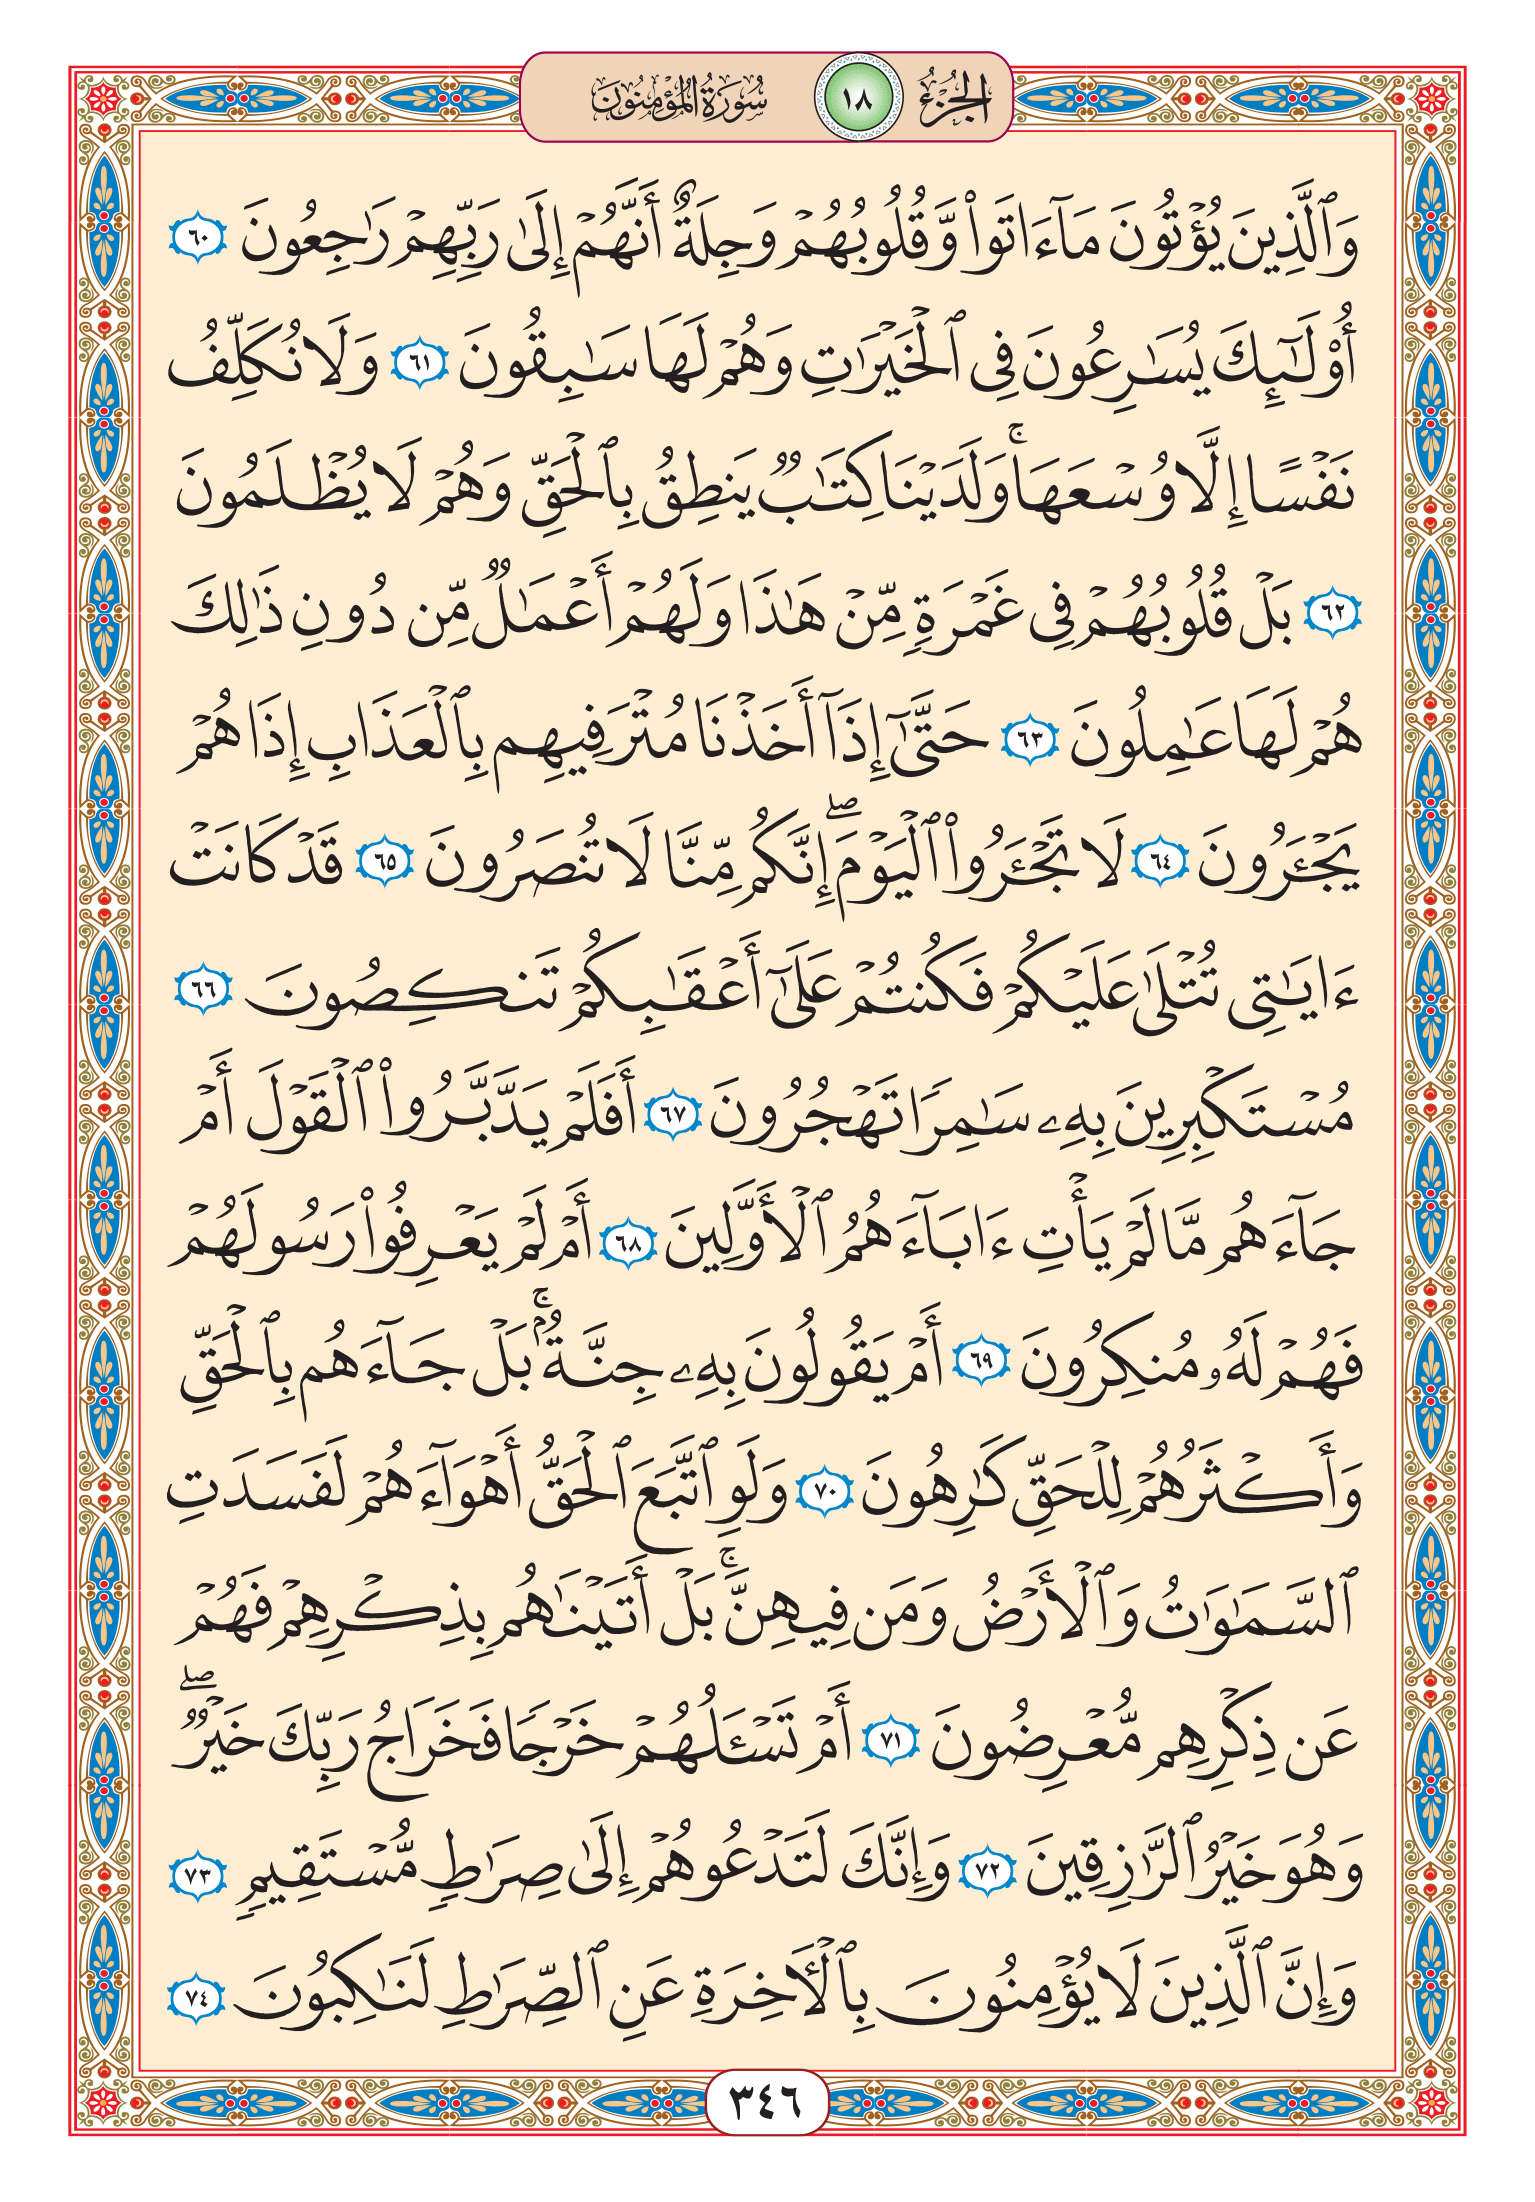 الجزء ١٨ سورة المؤمنون
وَٱلَّذِينَ يُؤْتُونَ مَآ ءَاتَوا۟ وَّقُلُوبُهُمْ وَجِلَةٌ أَنَّهُمْ إِلَىٰ رَبِّهِمْ رَٰجِعُونَ ٦٠
أُو۟لَـٰٓئِكَ يُسَـٰرِعُونَ فِى ٱلْخَيْرَٰتِ وَهُمْ لَهَا سَـٰبِقُونَ ٦١ وَلَا نُكَلِّفُ
نَفْسًا إِلَّا وُسْعَهَا ۚ وَلَدَيْنَا كِتَـٰبٌ يَنطِقُ بِٱلْحَقِّ وَهُمْ لَا يُظْلَمُونَ
٦٢ بَلْ قُلُوبُهُمْ فِى غَمْرَةٍ مِّنْ هَـٰذَا وَلَهُمْ أَعْمَـٰلٌ مِّن دُونِ ذَٰلِكَ
هُمْ لَهَا عَـٰمِلُونَ ٦٣ حَتَّىٰٓ إِذَآ أَخَذْنَا مُتْرَفِيهِم بِٱلْعَذَابِ إِذَا هُمْ
يَجْـَٔرُونَ ٦٤ لَا تَجْـَٔرُوا۟ ٱلْيَوْمَ ۖ إِنَّكُم مِّنَّا لَا تُنصَرُونَ ٦٥ قَدْ كَانَتْ
ءَايَـٰتِى تُتْلَىٰ عَلَيْكُمْ فَكُنتُمْ عَلَىٰٓ أَعْقَـٰبِكُمْ تَنكِصُونَ ٦٦
مُسْتَكْبِرِينَ بِهِۦ سَـٰمِرًا تَهْجُرُونَ ٦٧ أَفَلَمْ يَدَّبَّرُوا۟ ٱلْقَوْلَ أَمْ
جَآءَهُم مَّا لَمْ يَأْتِ ءَابَآءَهُمُ ٱلْأَوَّلِينَ ٦٨ أَمْ لَمْ يَعْرِفُوا۟ رَسُولَهُمْ
فَهُمْ لَهُۥ مُنكِرُونَ ٦٩ أَمْ يَقُولُونَ بِهِۦ جِنَّةٌۢ ۚ بَلْ جَآءَهُم بِٱلْحَقِّ
وَأَكْثَرُهُمْ لِلْحَقِّ كَـٰرِهُونَ ٧٠ وَلَوِ ٱتَّبَعَ ٱلْحَقُّ أَهْوَآءَهُمْ لَفَسَدَتِ
ٱلسَّمَـٰوَٰتُ وَٱلْأَرْضُ وَمَن فِيهِنَّ ۚ بَلْ أَتَيْنَـٰهُم بِذِكْرِهِمْ فَهُمْ
عَن ذِكْرِهِم مُّعْرِضُونَ ٧١ أَمْ تَسْـَٔلُهُمْ خَرْجًا فَخَرَاجُ رَبِّكَ خَيْرٌ ۖ
وَهُوَ خَيْرُ ٱلرَّٰزِقِينَ ٧٢ وَإِنَّكَ لَتَدْعُوهُمْ إِلَىٰ صِرَٰطٍ مُّسْتَقِيمٍ ٧٣
وَإِنَّ ٱلَّذِينَ لَا يُؤْمِنُونَ بِٱلْـَٔاخِرَةِ عَنِ ٱلصِّرَٰطِ لَنَـٰكِبُونَ ٧٤
٣٤٦